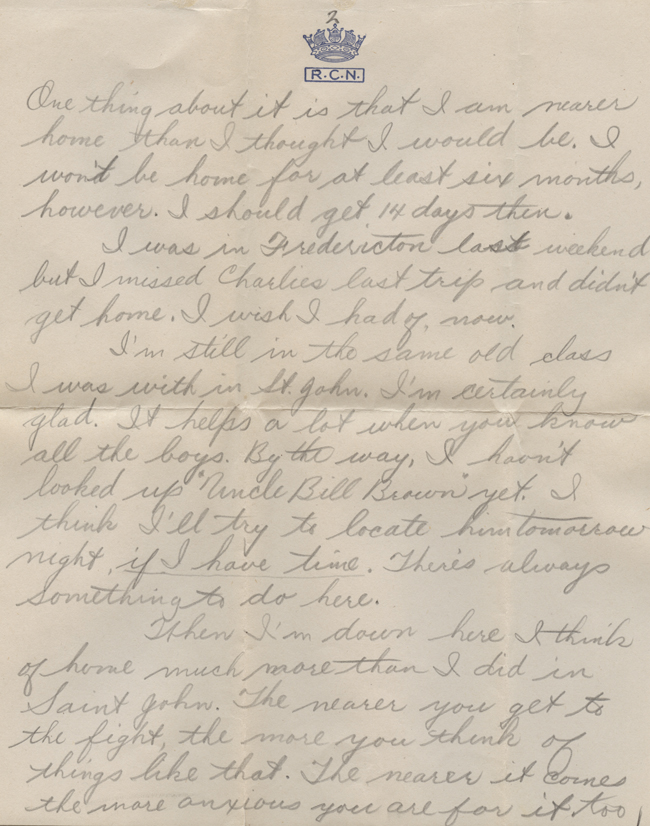 2
R.C.N.
One thing about it is that I am nearer
home than I thought I would be. I
won't be home for at least six months,
however. I should get 14 days then.
I was in Fredericton last weekend
but I missed Charlies last trip and didn't
get home. I wish I had of, now.
I'm still in the same old class
I was with in St. John. I'm certainly
glad. It helps a lot when you know
all the boys. By the way, I havn't
looked up "Uncle Bill Brown" yet. I
think I'll try to locate him tomorrow
night, if I have time. There's always
something to do here.
When I'm down here I think
of home much more than I did in
Saint John. The nearer you get to
the fight, the more you think of
things like that. The nearer it comes
the more anxious you are for it too